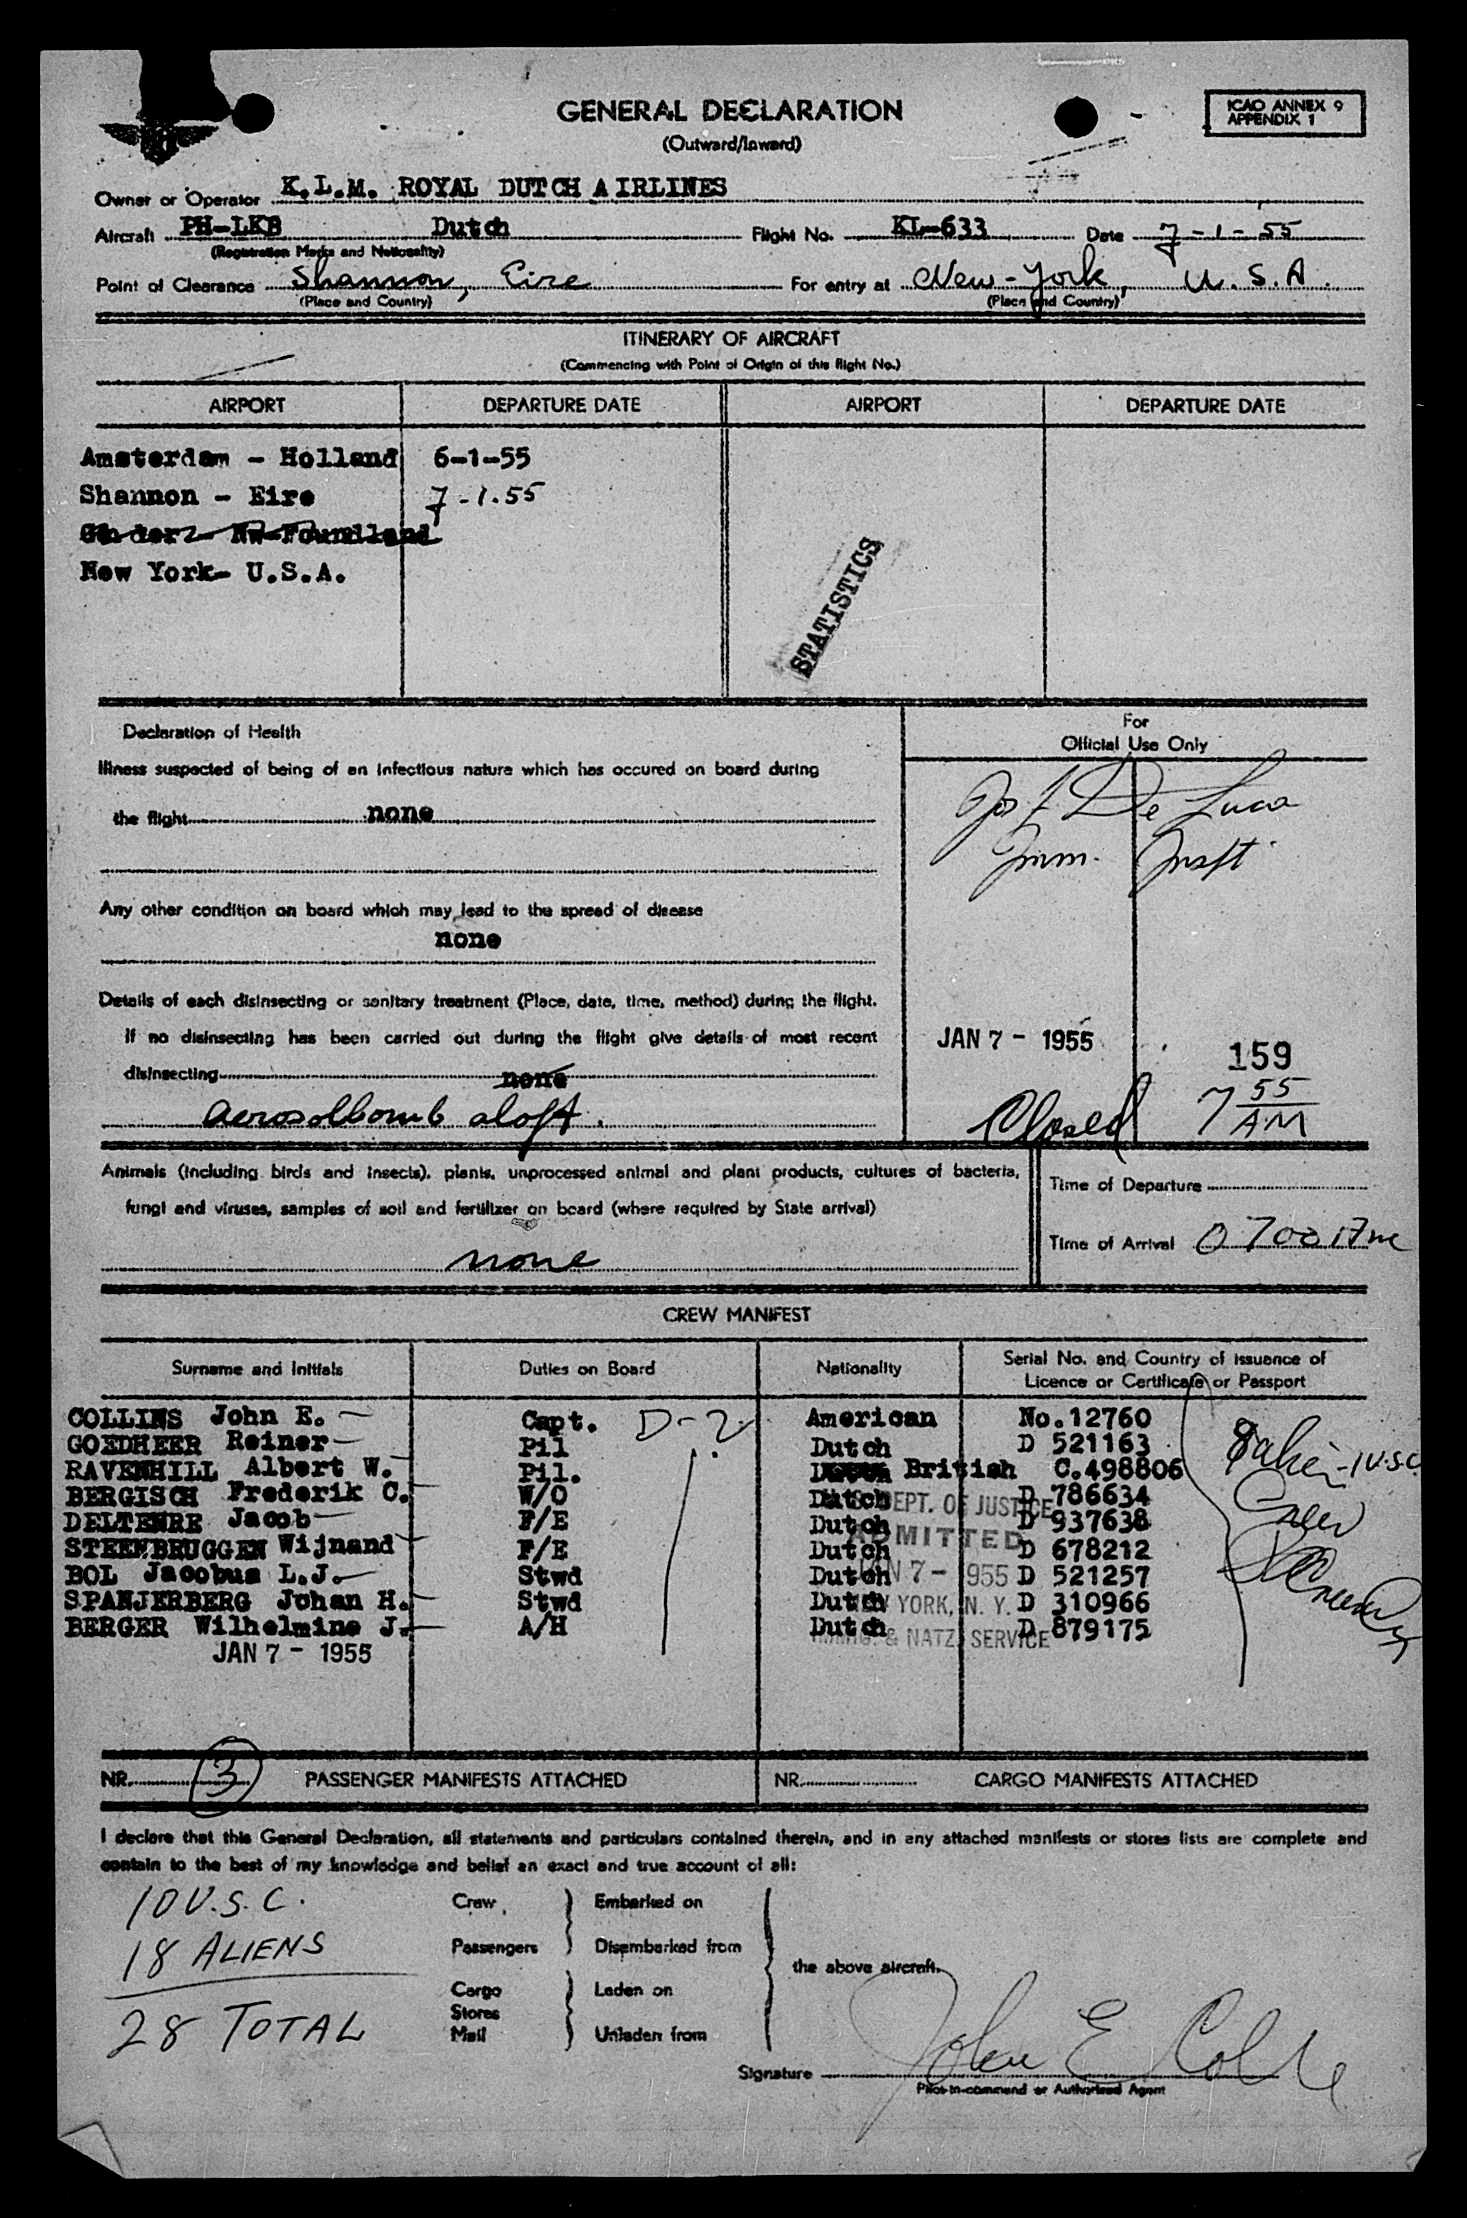 GENERAL DECLARATION
(Outward/Inward)
ICAO ANNEX 9
APPENDIX 1
Owner or Operator K.L.M. ROYAL DUTCH AIRLINES
Aircraft PH-LKB Dutch Flight No. KL-633 Date 7-1-55
(Registration Marks and Nationality)
Point of Clearance Shannon, Eire For entry at New-York, U.S.A.
(Place and Country) (Place and Country)
ITINERARY OF AIRCRAFT
(Commencing with Point of Origin of this flight No.)
AIRPORT DEPARTURE DATE AIRPORT DEPARTURE DATE
Amsterdam - Holland 6-1-55
Shannon - Eire 7-1.55
Gander - Nw-Foundland
New York- U.S.A.
STATISTICS
Declaration of Health
For
Official Use Only
Illness suspected of being of an infectious nature which has occured on board during
the flight none
De Luca
Imm. Inspt
Any other condition on board which may lead to the spread of disease
none
Details of each disinsecting or sanitary treatment (Place, date, time, method) during the flight.
If no disinsecting has been carried out during the flight give details of most recent
disinsecting none
aerosolbomb aloft.
JAN 7 - 1955 159
Closed 7 55 AM
Animals (including birds and insects), plants, unprocessed animal and plant products, cultures of bacteria,
fungi and viruses, samples of soil and fertilizer on board (where required by State arrival)
none
Time of Departure
Time of Arrival 0700
CREW MANIFEST
Surname and Initials Duties on Board Nationality Serial No. and Country of issuance of
Licence or Certificate or Passport
COLLINS John E. Capt. D-2 American No.12760
GOEDHEER Reiner Pil Dutch D 521163
RAVENHILL Albert W. Pil. British C.498806
BERGISCH Frederik C. W/O Dutch D 786634
DELTENRE Jacob F/E Dutch D 937638
STEENBRUGGEN Wijnand F/E Dutch D 678212
BOL Jacobus L.J. Stwd Dutch D 521257
SPANJERBERG Johan H. Stwd Dutch D 310966
BERGER Wilhelmine J. A/H Dutch D 879175
JAN 7 - 1955
DEPT. OF JUSTICE
ADMITTED
JAN 7 - 1955
NEW YORK, N. Y.
IMMIG. & NATZ. SERVICE
NR. 3 PASSENGER MANIFESTS ATTACHED NR. CARGO MANIFESTS ATTACHED
I declare that this General Declaration, all statements and particulars contained therein, and in any attached manifests or stores lists are complete and
contain to the best of my knowledge and belief an exact and true account of all:
10 U.S.C.
18 ALIENS
28 TOTAL
Crew Embarked on
Passengers Disembarked from
the above aircraft.
Cargo Laden on
Stores
Mail Unladen from
Signature John E Coll
Pilot-in-command or Authorised Agent